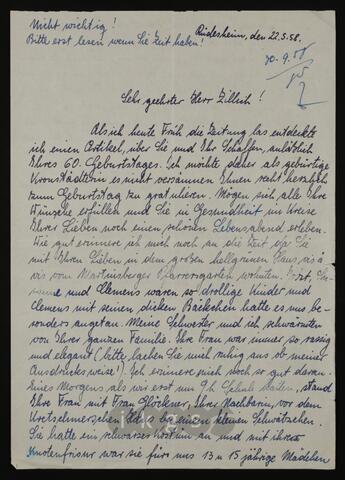 Nicht wichtig!
Bitte erst lesen wenn Sie Zeit haben!
Rüdesheim, den 22.5.58.
Sehr geehrter Herr Zillich!
Als ich heute Früh die Zeitung las entdeckte
ich einen Artikel, über Sie und Ihr Schaffen, anläßlich
Ihres 60. Geburtstages. Ich möchte daher als gebürtige
Kronstädterin es nicht versäumen Ihnen recht herzlich
zum Geburtstag zu gratulieren. Mögen sich, alle Ihre
Wünsche erfüllen und Sie in Gesundheit im Kreise
Ihrer Lieben noch einen schönen Lebensabend erleben.
Wie gut erinnere ich mich noch an die Zeit da Sie
mit Ihren Lieben in dem großen hellgrünen Haus vis à
vis vom Martinsberger Pfarrersgarten wohnten.
und Clemens waren so drollige Kinder und
Clemens mit seinen dicken Bäckchen hatte es uns be-
sonders angetan. Meine Schwester und ich, schwärmten
von Ihrer ganzen Familie. Ihre Frau war immer so rassig
und elegant (bitte, lachen Sie mich ruhig aus ob meiner
Ausdrucksweise). Ich erinnere mich noch so gut daran.
Eines Morgens als wir erst um 9 h Schule hatten, stand
Ihre Frau mit Frau Glöckner, Ihrer Nachbarin, vor dem
bei einem kleinen Schwätzchen.
Sie hatte ein schwarzes Kostüm an und mit ihrer
Knotenfrisur war sie für uns 13 u 15 jährige Mädchen